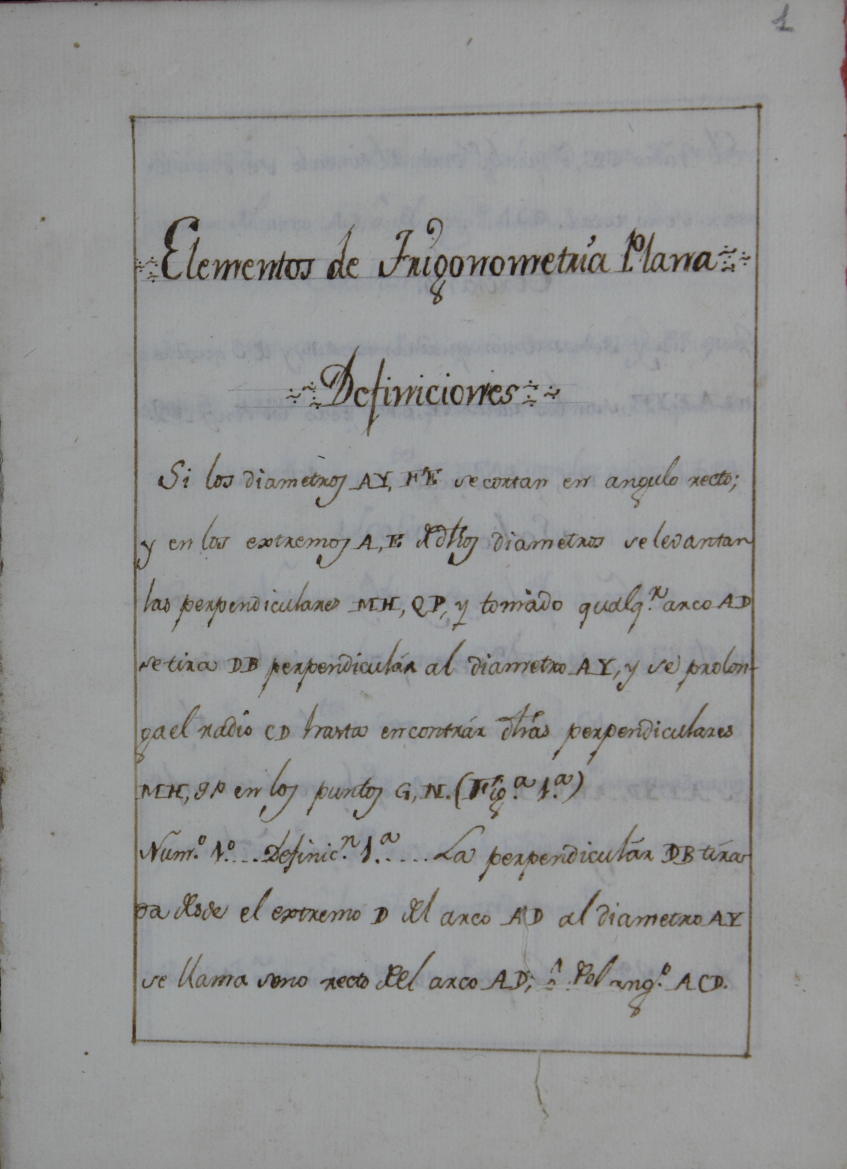 1
Elementos de Trigonometría Plana
Definiciones
Si los diametros AY, FE se cortan en angulo recto;
y en los extremos A, E de dhos diametros se levantan
las perpendiculares MH, QP, y tomado qualq.n arco AD
se tira DB perpendiculár al diametro AY, y se prolon-
ga el radio CD hasta encontrár dhas perpendiculares
MH, QP en los puntos G, N. (Fig.a 1.a)
Núm.o 1.o .... Definic.n 1.a ..... La perpendiculár DB tira-
da desde el extremo D del arco AD al diametro AY
se llama seno recto del arco AD; ó del ang.o ACD.